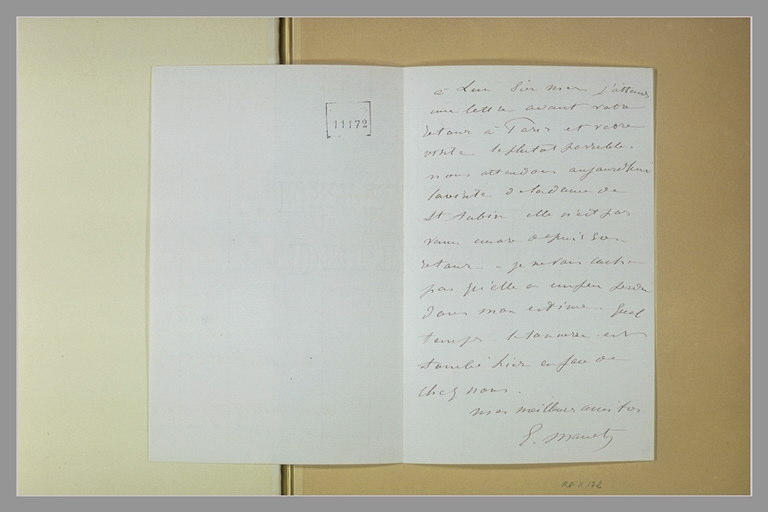 11172
à Luc sur mer j'attends
une lettre avant votre
retour à Paris et votre
visite le plutot possible.
nous attendons aujourd'hui
la visite de la dame de
St Aubin elle n'est pas
venue encore depuis son
retour. - je ne vous cache
pas qu'elle a un peu perdu
dans mon estime. Quel
temps. le tonnerre est
tombé hier en face de
chez nous.
mes meilleures amitiés
E. Manet